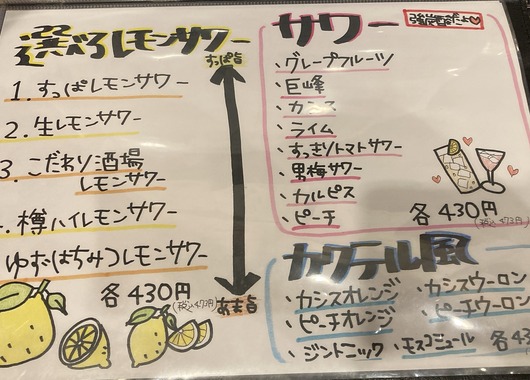 選べるレモンサワー
すっぱ旨
1. すっぱレモンサワー
2. 生レモンサワー
3. こだわり酒場
レモンサワー
樽ハイレモンサワー
ゆずはちみつレモンサワー
各430円
(税込473円)
あま旨
サワー
・グレープフルーツ
・巨峰
・カシス
・ライム
・すっきりトマトサワー
・男梅サワー
・カルピス
・ピーチ
各430円
(税込473円)
カクテル風
・カシスオレンジ
・カシスウーロン
・ピーチオレンジ
・ピーチウーロン
・ジントニック
・モスコミュール
各43